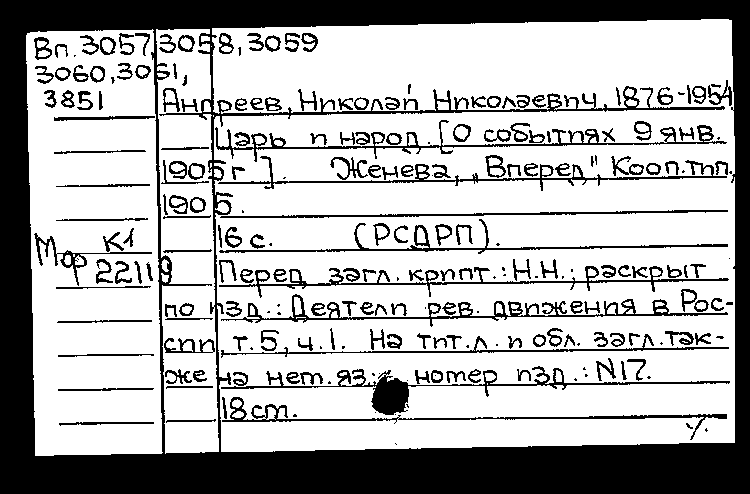 Вп.3057,3058,3059
3060,3061,
3851 Андреев, Николай Николаевич, 1876-1954
Царь и народ. [О событиях 9 янв.
1905 г.]. Женева, „Вперед", Кооп.тип.,
1905.
16 с. (РСДРП).
Мор К1
22119 Перед загл. крипт.: Н.Н.; раскрыт
по изд.: Деятели рев. движения в Рос-
сии, т.5, ч.1. На тит.л. и обл. загл. так-
же на нет. яз.; номер изд.: N17.
18 cm.